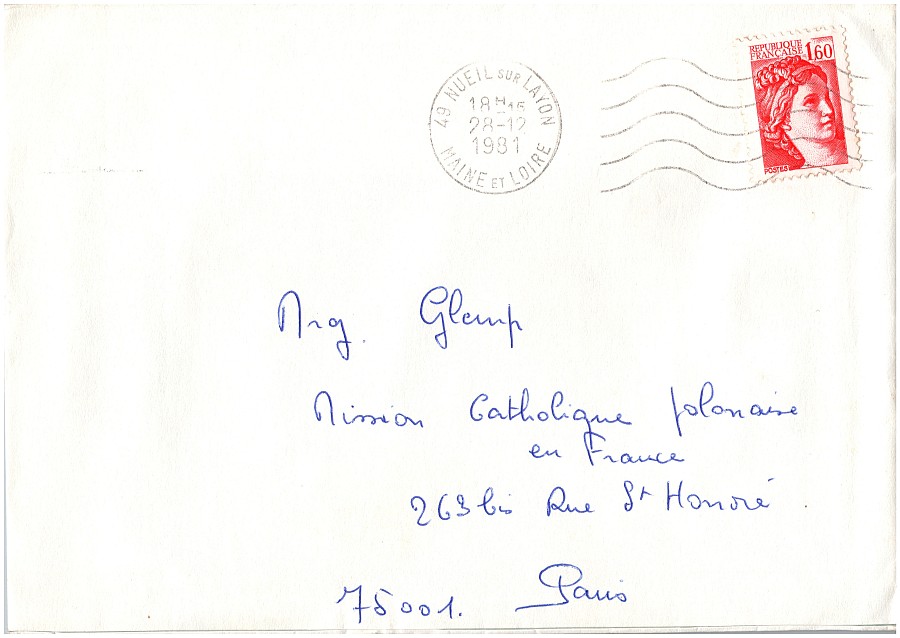 49 NUEIL SUR LAYON
18H15
28-12
1981
MAINE ET LOIRE
REPUBLIQUE
FRANÇAISE 1,60
POSTES
Mrg. Glemp
Mission Catholique polonaise
en France
263 bis Rue St Honoré
75001. Paris